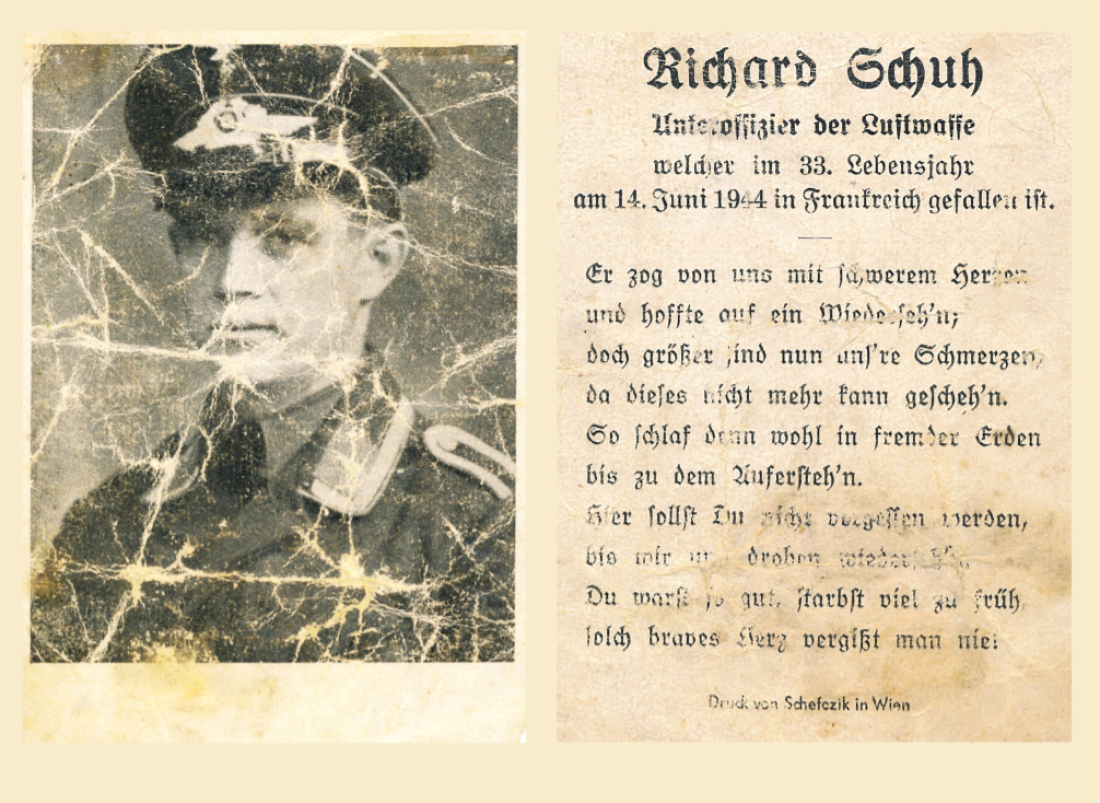 Richard Schuh
Unteroffizier der Luftwaffe
welcher im 33. Lebensjahr
am 14. Juni 1944 in Frankreich gefallen ist.
Er zog von uns mit schwerem Herzen
und hoffte auf ein Wiederseh'n;
doch größer sind nun uns're Schmerzen,
da dieses nicht mehr kann gescheh'n.
So schlaf denn wohl in fremder Erden
bis zu dem Aufersteh'n.
Hier sollst Du nicht vergessen werden,
bis wir uns droben wiederseh'n.
Du warst so gut, starbst viel zu früh,
solch braves Herz vergißt man nie!
Druck von Schefczik in Wien